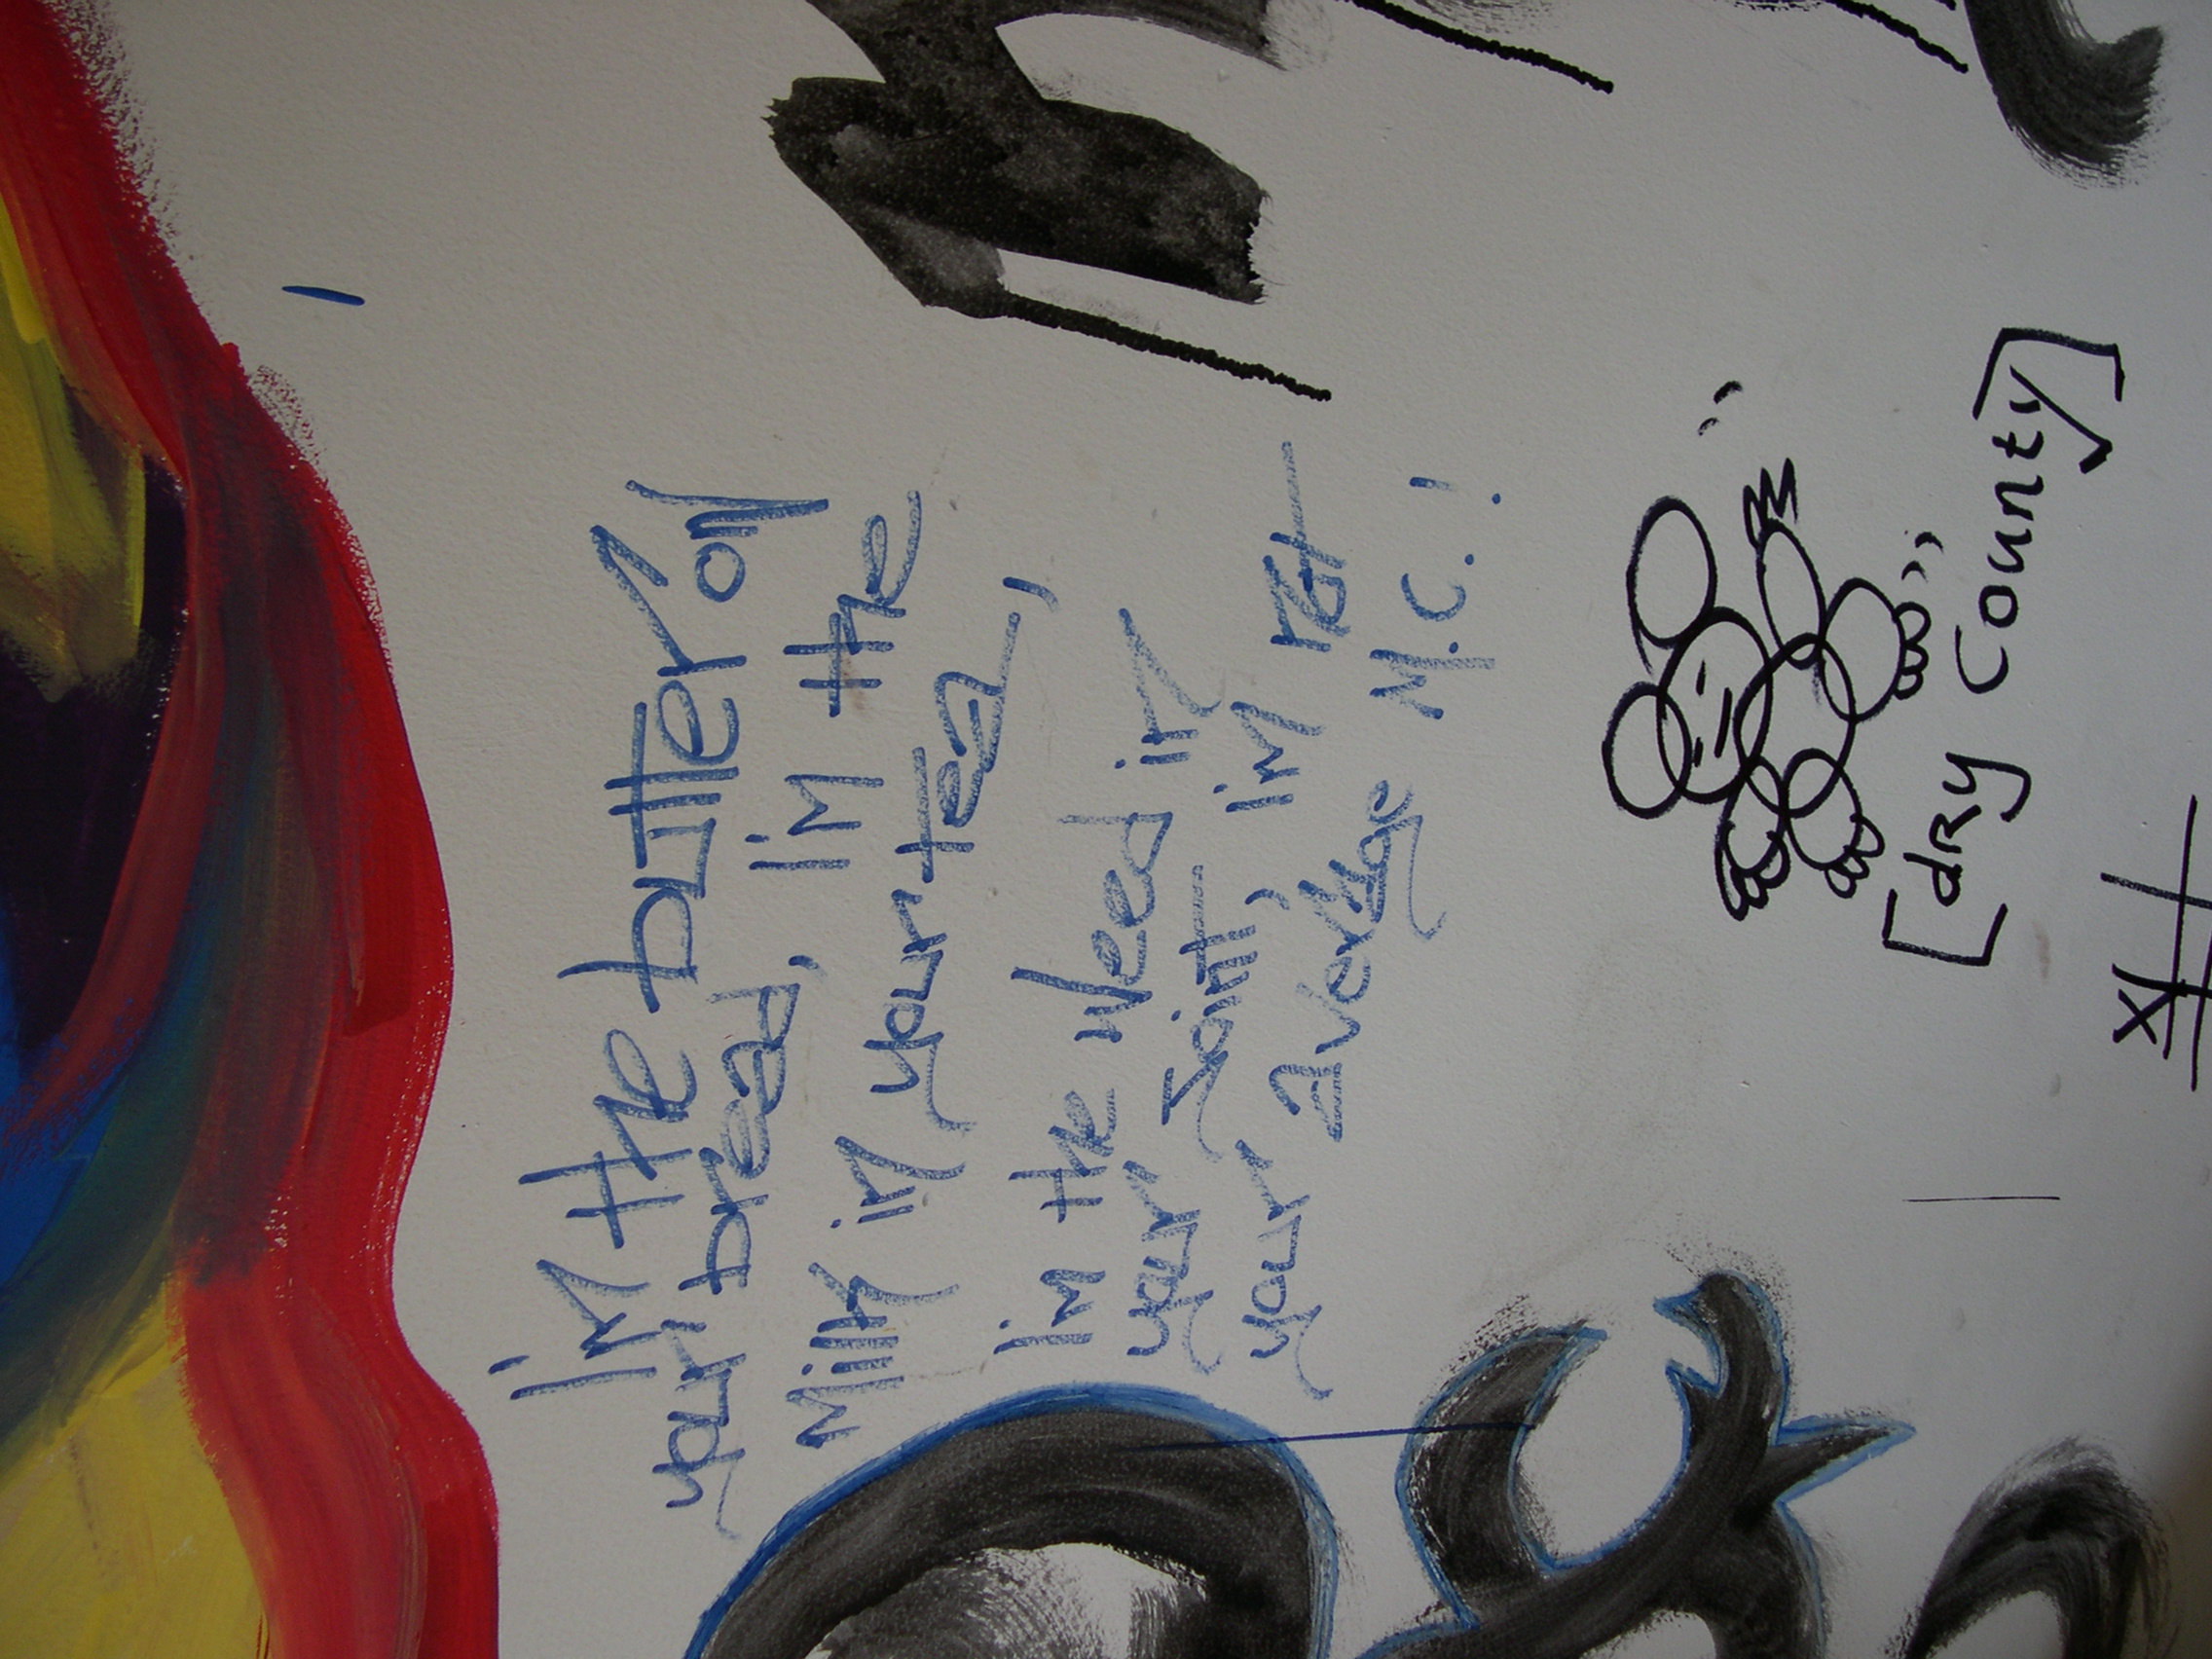 I'm the butter on
your bread, I'm the
Milk in your tea,
I'm the weed in
your Joint, I'm not
your average M.C.!
[dRy County]